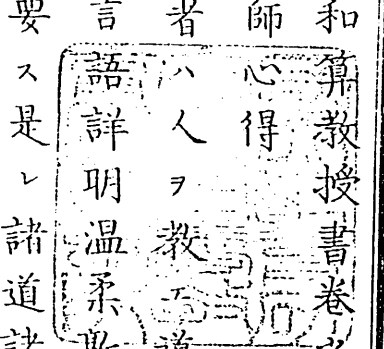 和算教授書卷
師心得
者ハ人ヲ教
言語詳明温柔
要ス是レ諸道